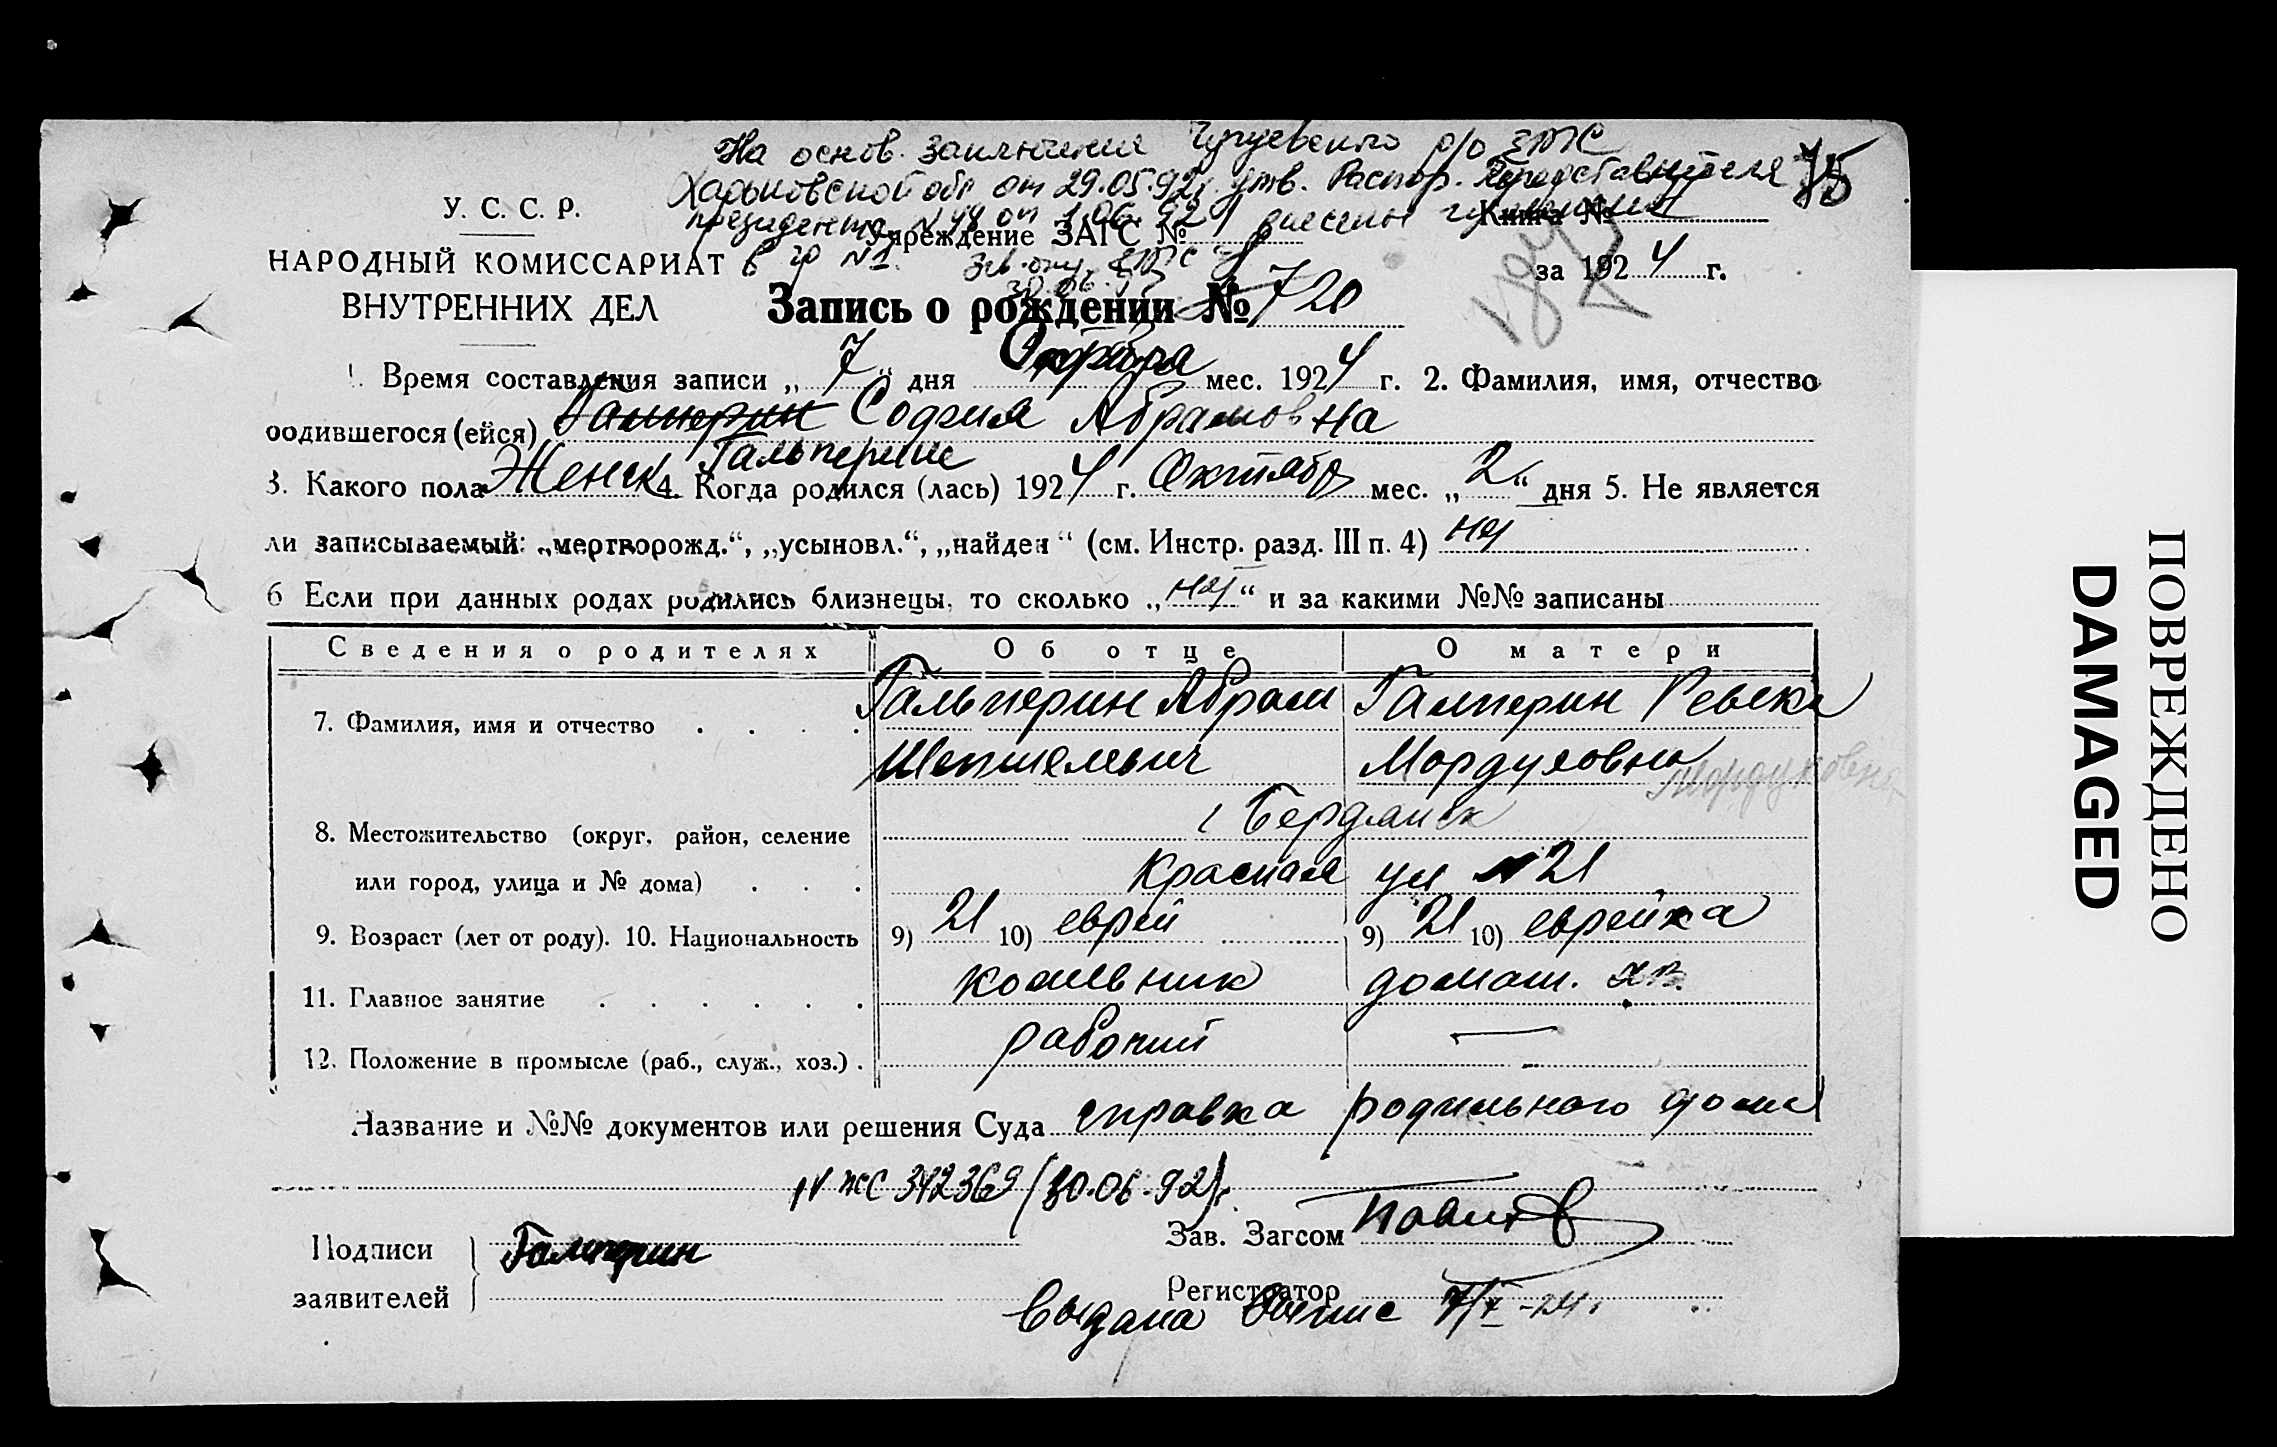 На основ. заключения Чугуевского р/о ЗАГС
Харьковской обл от 29.05.92г. утв. Распор. Представителя
75
президента N 44 от 1.06.92 внесены
У. С. С. Р.
Учреждение ЗАГС №
Книга №
НАРОДНЫЙ КОМИССАРИАТ
в гр N1. зав. отд. ЗАГС
за 1924 г.
30.06.92
ВНУТРЕННИХ ДЕЛ
Запись о рождении № 720
1. Время составления записи „ 7 “ дня Октября мес. 1924 г. 2. Фамилия, имя, отчество
родившегося (ейся) Галперин София Абрамовна
Гальперине
3. Какого пола Женск 4. Когда родился (лась) 1924 г. Октября мес. „ 2 “ дня 5. Не является
ли записываемый: „мертворожд.“, „усыновл.“, „найден“ (см. Инстр. разд. III п. 4) нет
6 Если при данных родах родились близнецы, то сколько „ нет “ и за какими №№ записаны
Сведения о родителях Об отце О матери
7. Фамилия, имя и отчество . . . . Гальперин Абрам Галперин Ревека
Шепшелевич Мордуховна Мордуховна
г Бердянск
8. Местожительство (округ, район, селение
или город, улица и № дома) . . . Красная ул N 21
9. Возраст (лет от роду). 10. Национальность 9) 21 10) еврей 9) 21 10) еврейка
11. Главное занятие . . . . . . кожевник домаш. хз.
12. Положение в промысле (раб., служ., хоз.) . рабочий —
Название и №№ документов или решения Суда справка родильного дома
IV ЖС 342369 (30.06.92)г.
Подписи
заявителей
Галперин
Зав. Загсом
Регистратор
Выдана 7/X-24г.